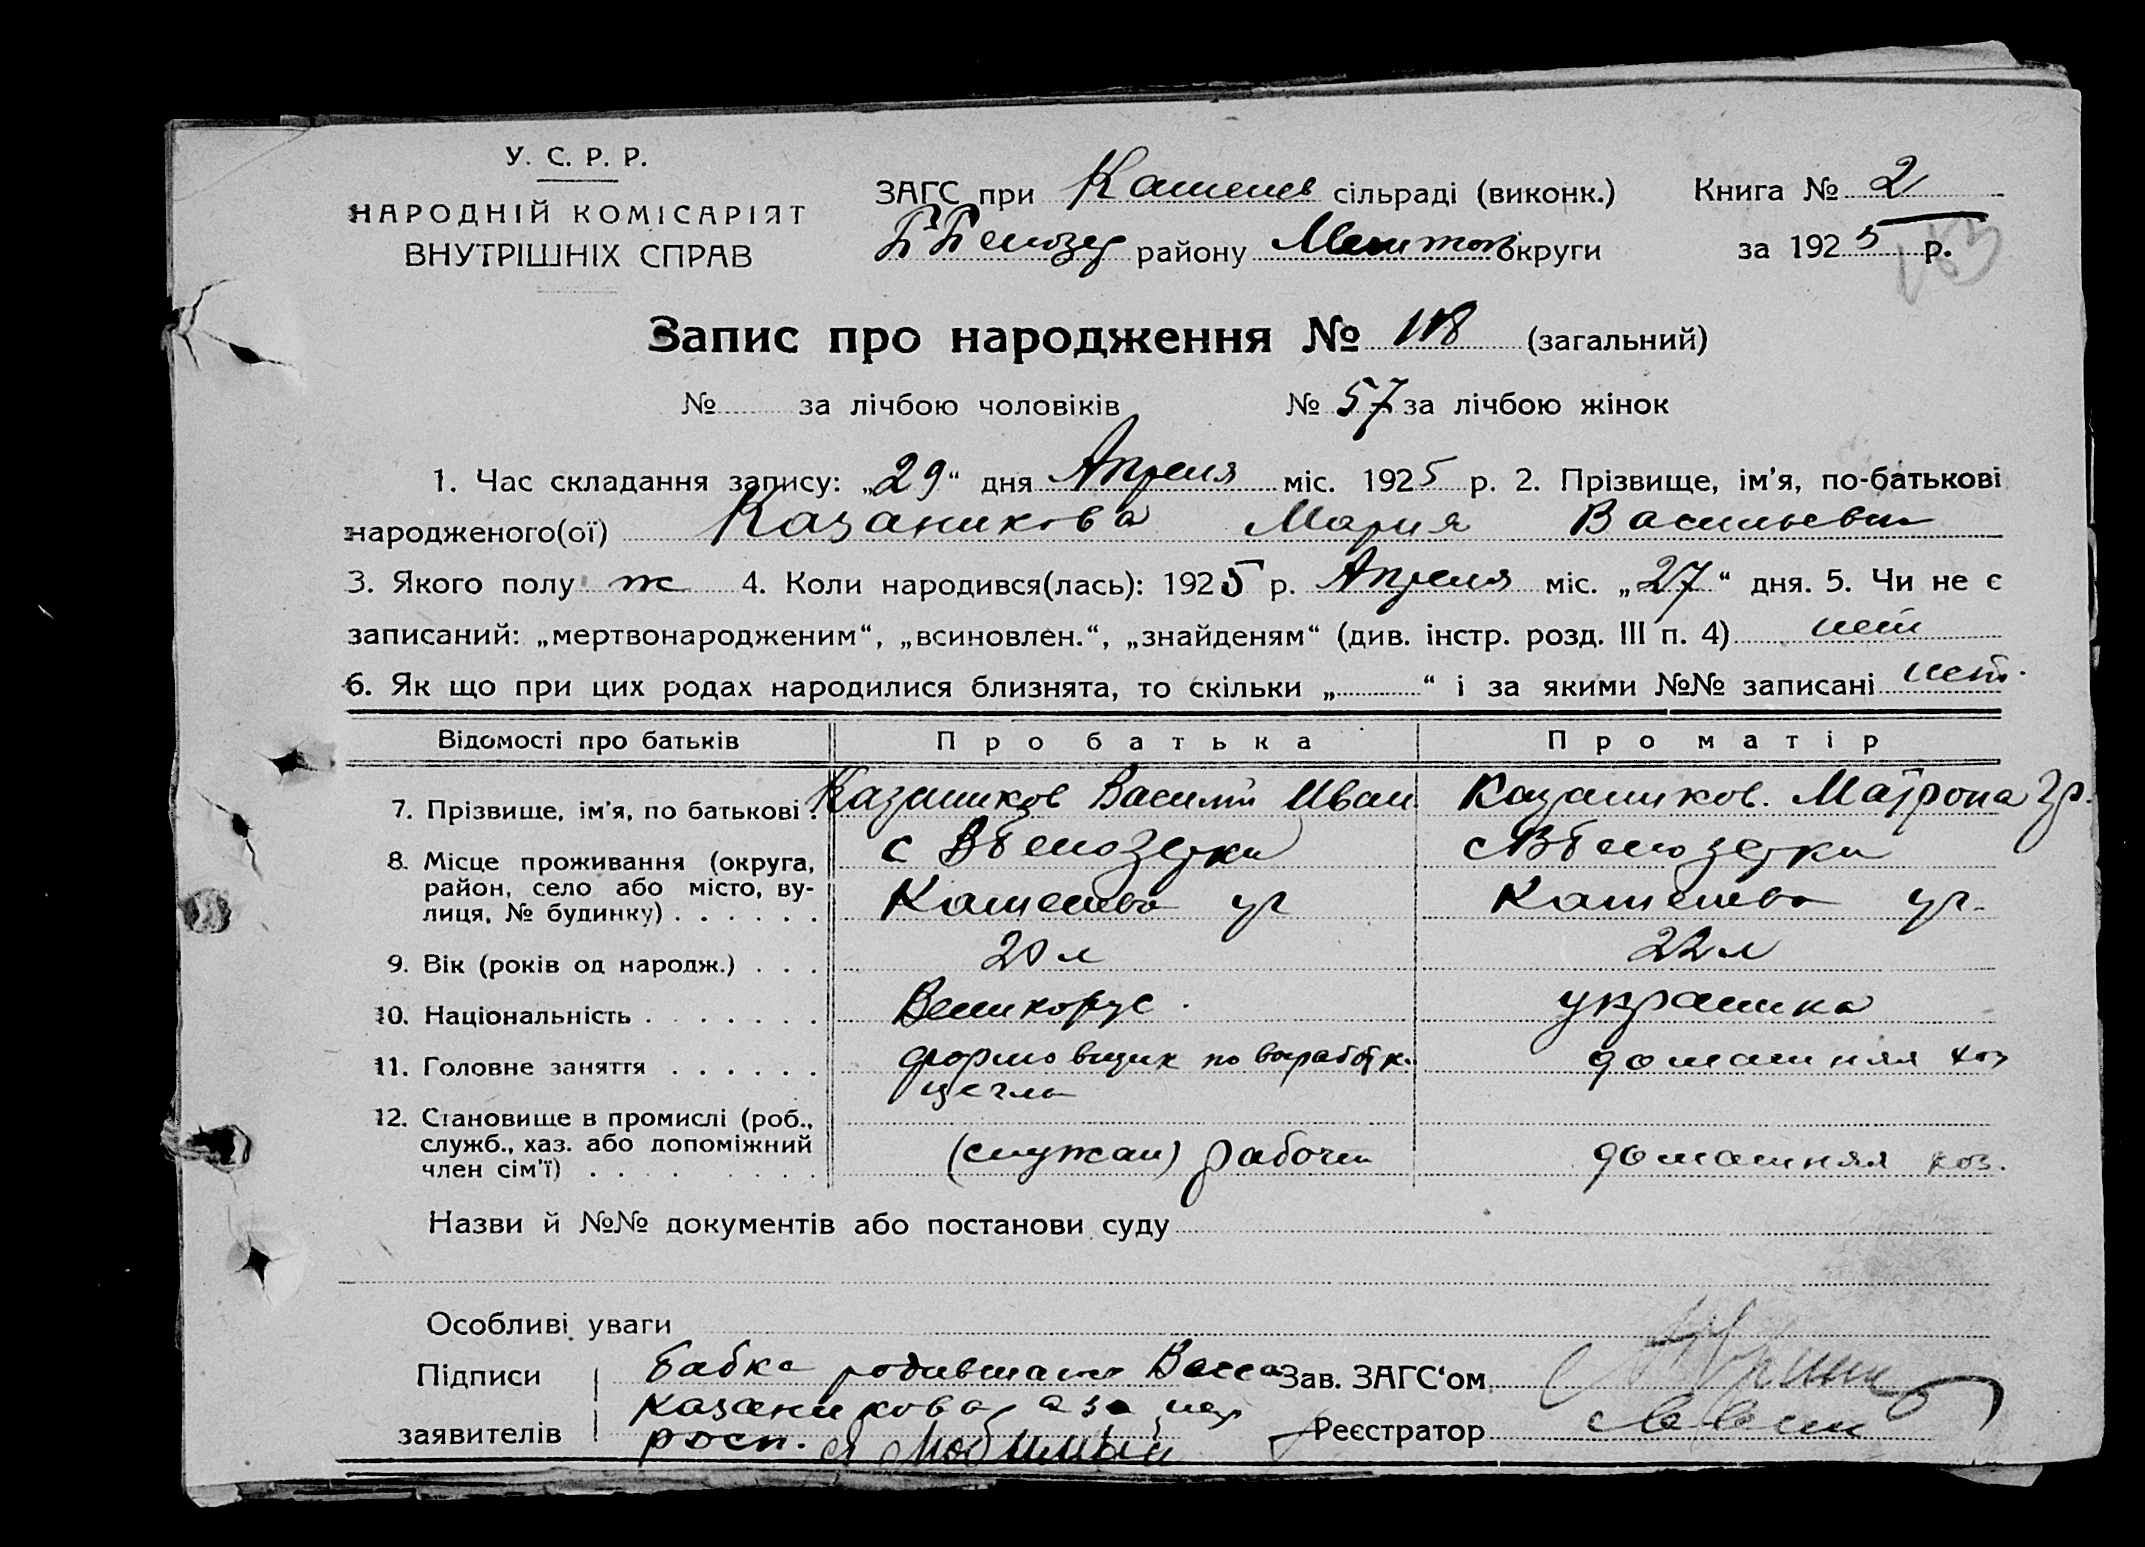 У. С. Р. Р.
НАРОДНІЙ КОМІСАРІЯТ
ВНУТРІШНІХ СПРАВ
ЗАГС при сільраді (виконк.)
району округи
Книга № 2
за 1925 р.
153
Запис про народження № 118 (загальний)
№ за лічбою чоловіків № 57 за лічбою жінок
1. Час складання запису: „29“ дня Апреля міс. 1925 р. 2. Прізвище, ім’я, по-батькові
народженого(ої) Казаникова Мария Васильевн
3. Якого полу ж 4. Коли народився(лась): 1925 р. Апреля міс. „27“ дня. 5. Чи не є
записаний: „мертвонародженим“, „всиновлен.“, „знайденям“ (див. інстр. розд. III п. 4) нет
6. Як що при цих родах народилися близнята, то скільки „ “ і за якими №№ записані нет.
Відомості про батьків Про батька Про матір
7. Прізвище, ім’я, по батькові . Казаников Василий Иван Казаников. Матрона Гр.
8. Місце проживання (округа,
район, село або місто, ву-
лиця, № будинку) . . . . . .
с Вбелозерки с Вбелозерки
ул ул.
9. Вік (років од народж.) . . . 20 л 22 л
10. Національність . . . . . . . Великорус. украинка
11. Головне заняття . . . . . . формовщик по выработк. домашняя хоз
цегла
12. Становище в промислі (роб.,
служб., хаз. або допоміжний
член сім’ї) . . . . . . .
(служащ) рабочи домашняя хоз.
Назви й №№ документів або постанови суду
Особливі уваги
Підписи
заявителів
бабка родившаг Васса
Казаникова а за нее
росп. Любимый
Зав. ЗАГС‘ом
Реєстратор